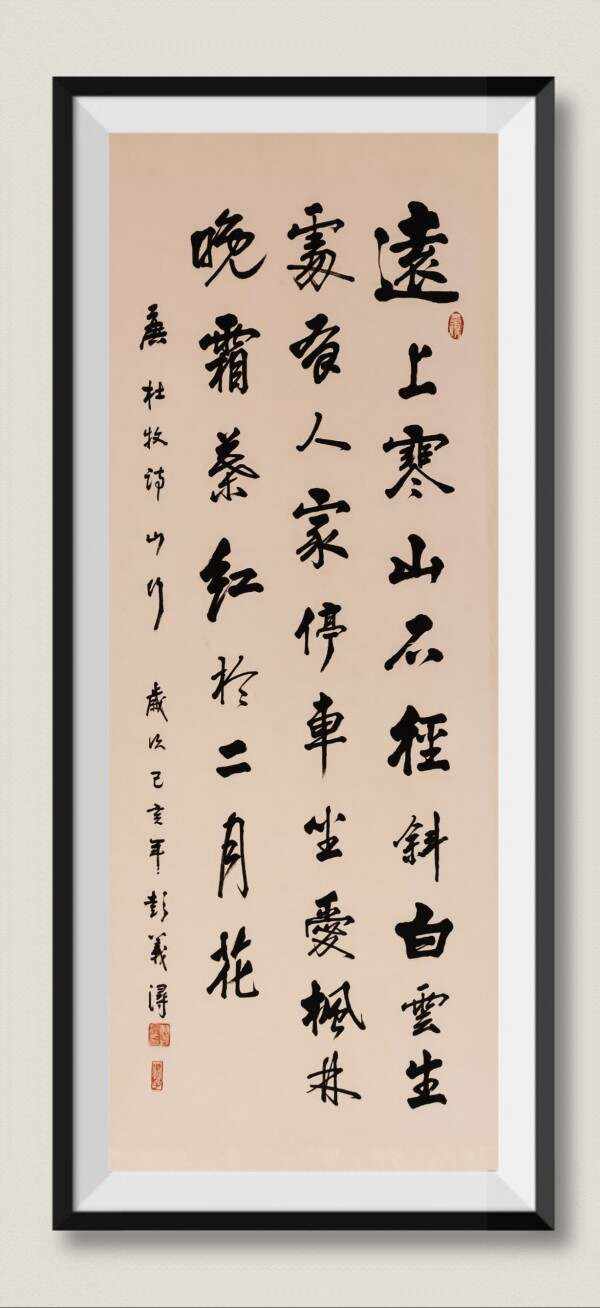 遠上寒山石徑斜白雲生
處有人家停車坐愛楓林
晚霜葉紅於二月花
杜牧詩山行 歲次己亥年彭義潯